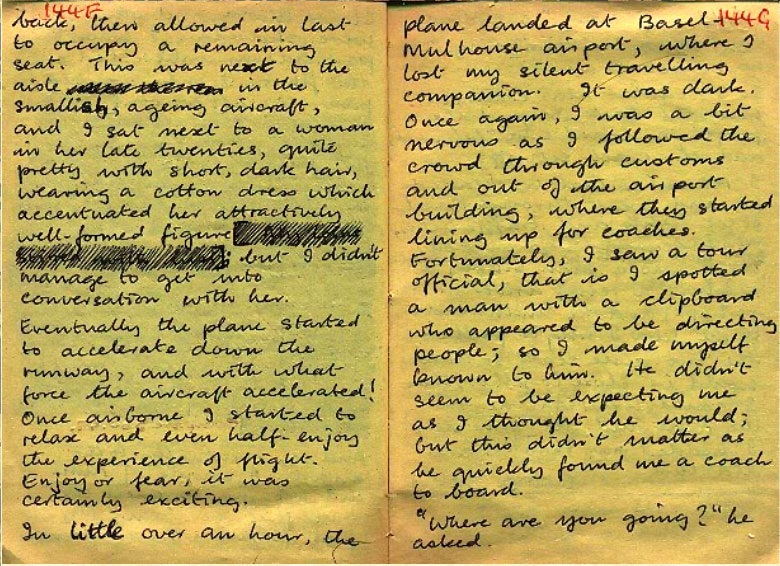 144F
back, then allowed in last
to occupy a remaining
seat. This was next to the
aisle in the
smallish, ageing aircraft,
and I sat next to a woman
in her late twenties, quite
pretty with short, dark hair,
wearing a cotton dress which
accentuated her attractively
well-formed figure
; but I didn't
manage to get into
conversation with her.
Eventually the plane started
to accelerate down the
runway, and with what
force the aircraft accelerated!
Once airborne I started to
relax and even half-enjoy
the experience of flight.
Enjoy or fear, it was
certainly exciting.
In little over an hour, the
144G
plane landed at Basel-
Mulhouse airport, where I
lost my silent travelling
companion. It was dark.
Once again, I was a bit
nervous as I followed the
crowd through customs
and out of the airport
building, where they started
lining up for coaches.
Fortunately, I saw a tour
official, that is I spotted
a man with a clipboard
who appeared to be directing
people; so I made myself
known to him. He didn't
seem to be expecting me
as I thought he would;
but this didn't matter as
he quickly found me a coach
to board.
"Where are you going?" he
asked.